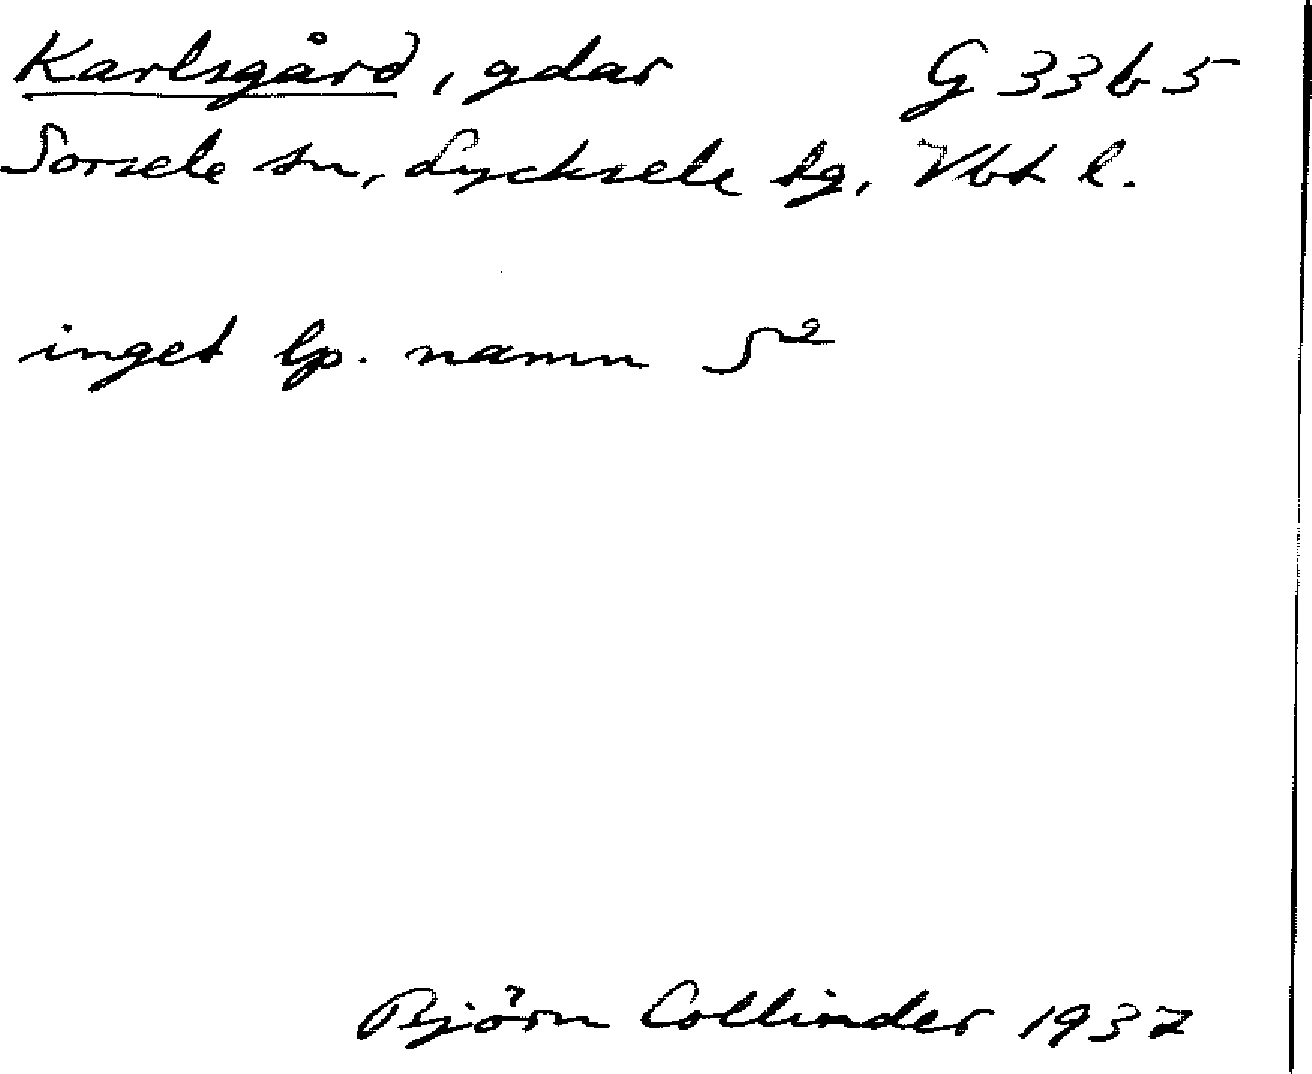 Karlsgård, gdar G 33 b 5
Sorsele sn, Lycksele tg, Vbt l.
inget lp. namn S²
Björn Collinder 1937